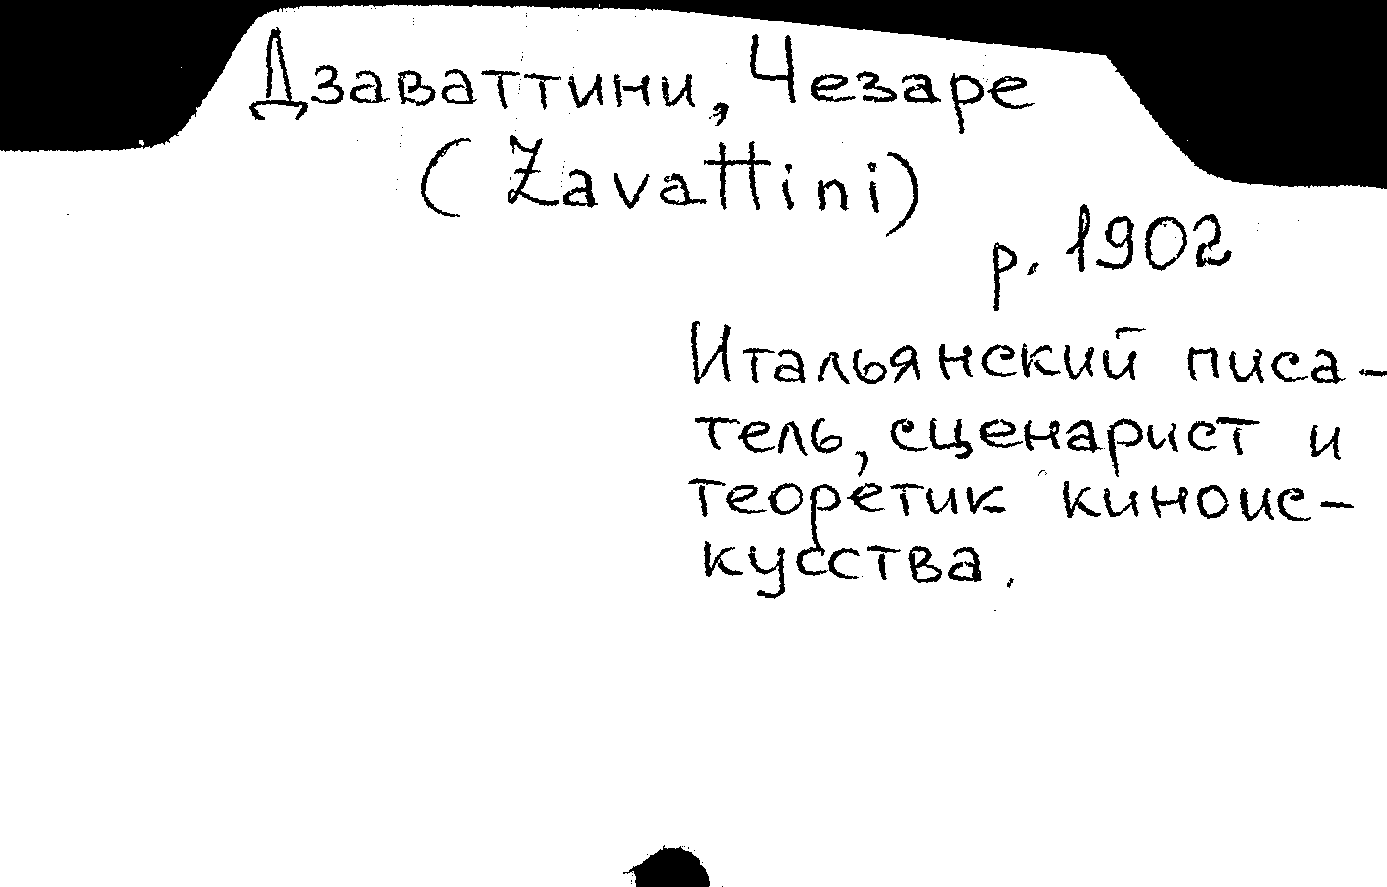 Дзаваттини, Чезаре
(Zavattini)
р. 1902
Итальянский писа-
тель, сценарист и
теоретик киноис-
кусства.